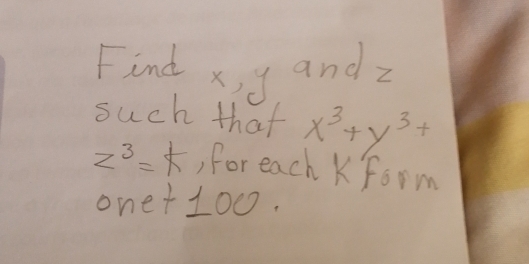 Find x, y and z
such that x³+y³+
z³=k, for each K form
onet 100.